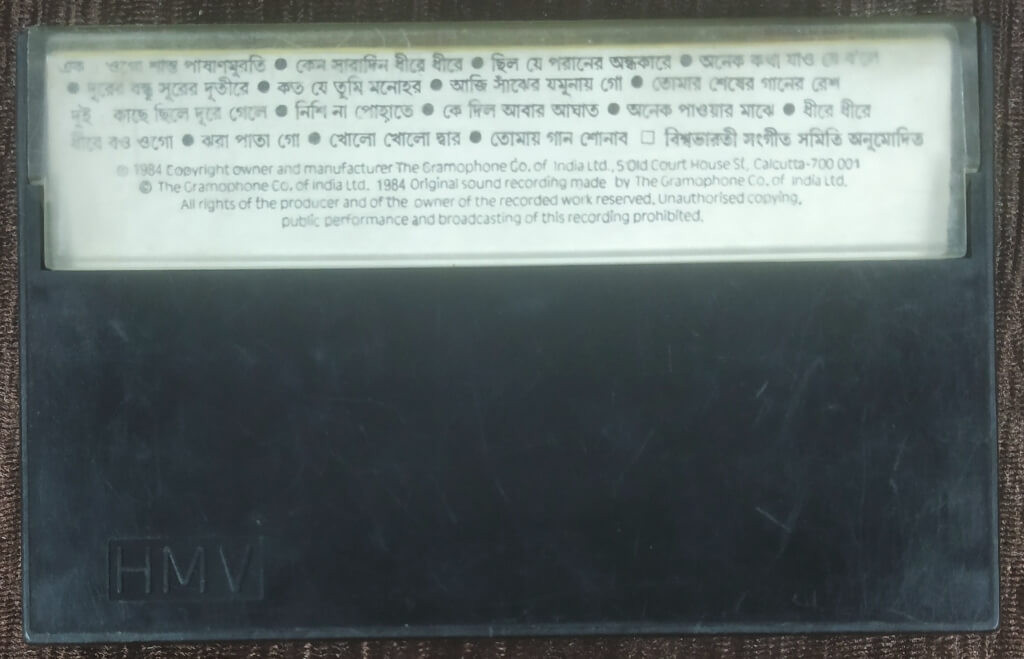 এক ওগো শান্ত পাষাণমুরতি ● কেন সারাদিন ধীরে ধীরে ● ছিল যে পরানের অন্ধকারে ● অনেক কথা যাও যে ব'লে
● দূরের বন্ধু সুরের দূতীরে ● কত যে তুমি মনোহর ● আজি সাঁঝের যমুনায় গো ● তোমার শেষের গানের রেশ
দুই কাছে ছিলে দূরে গেলে ● নিশি না পোহাতে ● কে দিল আবার আঘাত ● অনেক পাওয়ার মাঝে ● ধীরে ধীরে
ধীরে বও ওগো ● ঝরা পাতা গো ● খোলো খোলো দ্বার ● তোমায় গান শোনাব □ বিশ্বভারতী সংগীত সমিতি অনুমোদিত
℗ 1984 Copyright owner and manufacturer The Gramophone Co. of India Ltd., 5 Old Court House St, Calcutta-700 001
© The Gramophone Co. of India Ltd. 1984 Original sound recording made by The Gramophone Co. of India Ltd.
All rights of the producer and of the owner of the recorded work reserved. Unauthorised copying,
public performance and broadcasting of this recording prohibited.
HMV